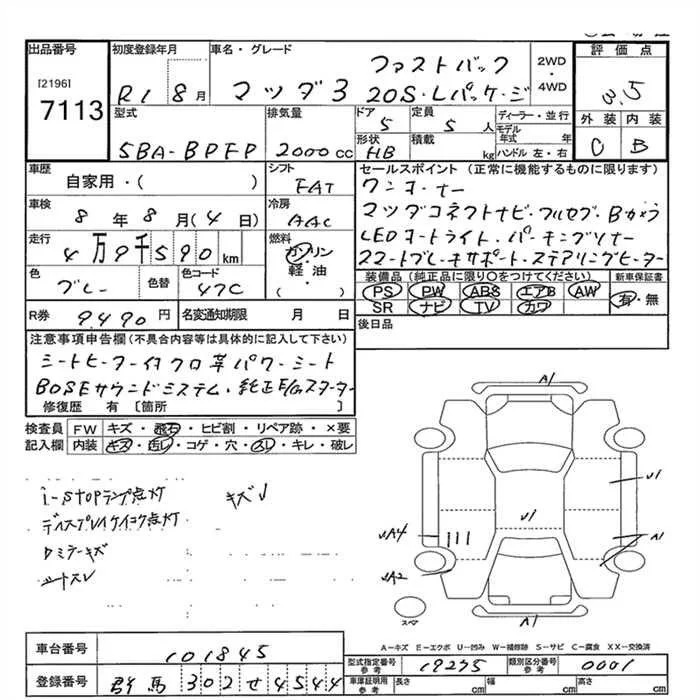 出品番号
[2196]
7113
初度登録年月
R1 8月
車名・グレード
ファストバック
マツダ3 20S・Lパッケージ
2WD
・
4WD
評価点
3.5
外装 内装
C B
型式
5BA-BPFP
排気量
2000cc
ドア
5
定員
5人
形状
HB
積載
kg
ディーラー・並行
モデル年式 年
ハンドル 左・右
車歴
自家用・( )
シフト
FAT
車検
8年8月(4日)
冷房
AAC
走行
4万9千590km
燃料
ガソリン
・
軽油
( )
色
グレー
色替
色コード
47C
R券
9490円
名変通知期限 月 日
セールスポイント(正常に機能するものに限ります)
ワンオーナー
マツダコネクトナビ・フルセグ・Bカメラ
LEDオートライト・パーキングソナー
スマートブレーキサポート・ステアリングヒーター
装備品(純正品に限り〇をつけてください)
PS PW ABS エアB AW
SR ナビ TV カワ
新車保証書
有・無
後日品
注意事項申告欄(不具合内容等は具体的に記入して下さい)
シートヒーター付クロ革パワーシート
BOSEサウンドシステム・純正E/Gスターター
修復歴 有 [箇所
検査員記入欄
FW キズ・飛石・ヒビ割・リペア跡・×要
内装 キズ・汚レ・コゲ・穴・スレ・キレ・破レ
i-STOPランプ点灯 キズ
ディスプレイケイコク点灯
ロミラーキズ
シートスレ
A1
U1
U1
A4
A1
A2
A1
スペア
A-キズ E-エクボ U-凹み W-補修跡 S-サビ C-腐食 XX-交換済
車台番号
101845
登録番号
群馬 302 せ 4544
型式指定番号
参考
19245
類別区分番号
参考
0001
車庫証明用
参考
長さ cm 幅 cm 高さ cm